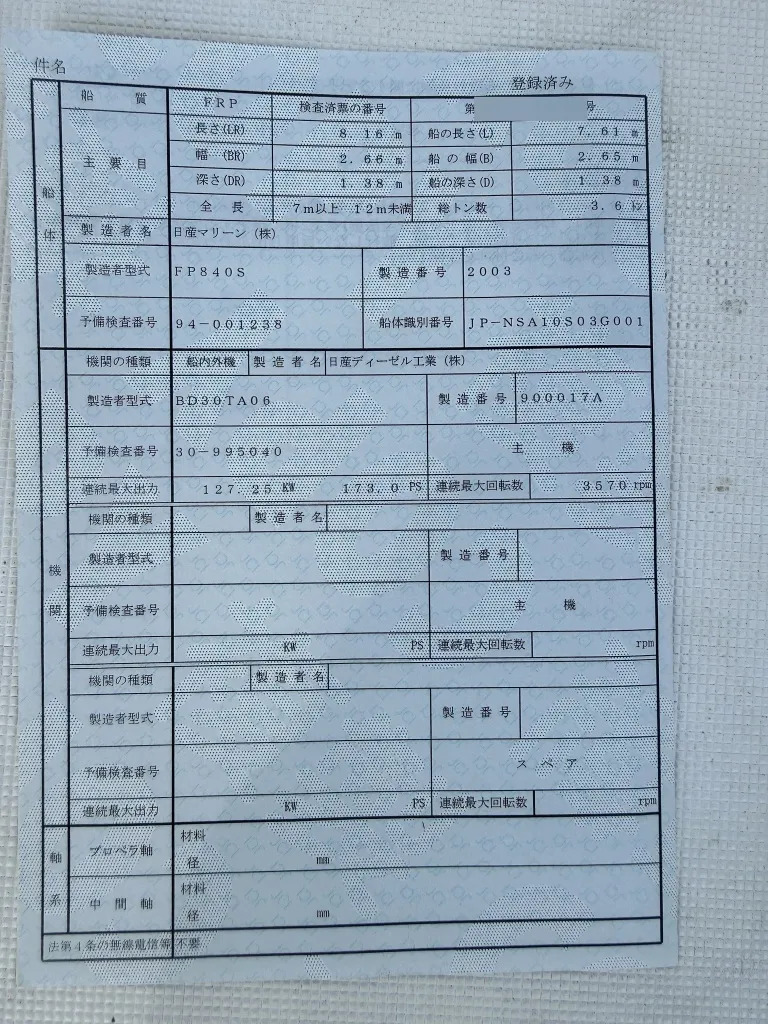 件名
登録済み
船質 FRP 検査済票の番号 第 号
船体
主要目 長さ(LR) 8.16 m 船の長さ(L) 7.61 m
幅 (BR) 2.66 m 船の幅(B) 2.65 m
深さ(DR) 1.38 m 船の深さ(D) 1 38 m
全長 7m以上 12m未満 総トン数 3.6 トン
製造者名 日産マリーン（株）
製造者型式 FP840S 製造番号 2003
予備検査番号 94-001238 船体識別番号 JP-NSA10S03G001
機関
機関の種類 船内外機 製造者名 日産ディーゼル工業（株）
製造者型式 BD30TA06 製造番号 900017A
予備検査番号 30-995040 主機
連続最大出力 127.25 KW 173.0 PS 連続最大回転数 3570 rpm
機関の種類 製造者名
製造者型式 製造番号
予備検査番号 主機
連続最大出力 KW PS 連続最大回転数 rpm
機関の種類 製造者名
製造者型式 製造番号
予備検査番号 スペア
連続最大出力 KW PS 連続最大回転数 rpm
軸系
プロペラ軸 材料
径 mm
中間軸 材料
径 mm
法第4条の無線電信等 不要